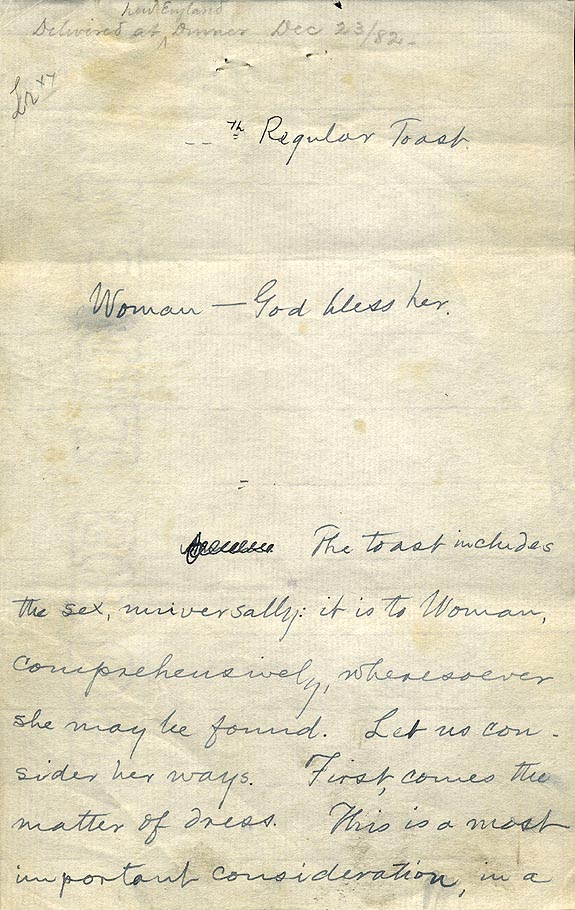 New England
Delivered at ^ Dinner Dec 23/82.
-- th Regular Toast.
Woman — God bless her.
The toast includes
the sex, universally: it is to Woman,
comprehensively, wheresoever
she may be found. Let us con-
sider her ways. First, comes the
matter of dress. This is a most
important consideration, in a